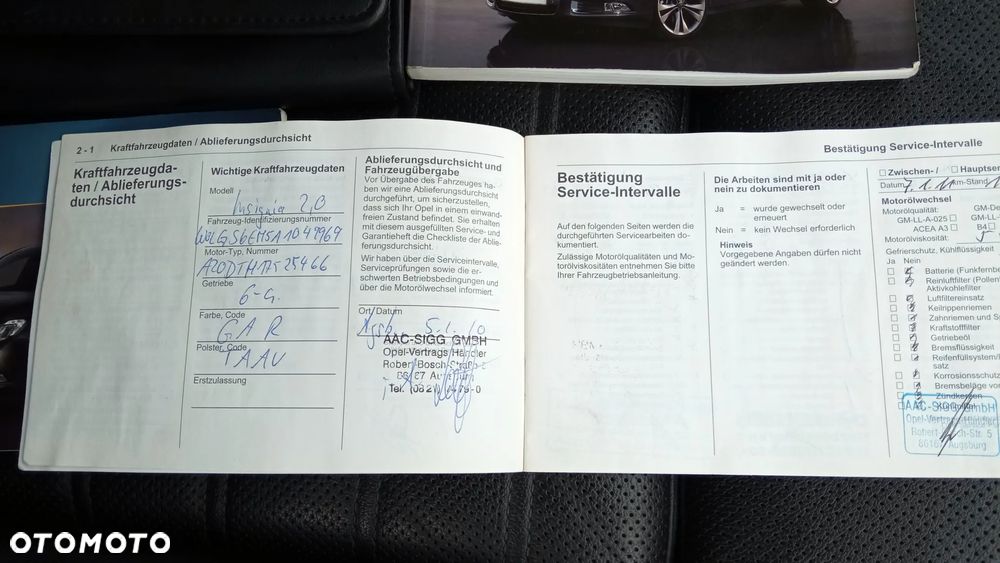 2 - 1 Kraftfahrzeugdaten / Ablieferungsdurchsicht
Kraftfahrzeugda-
ten / Ablieferungs-
durchsicht
Wichtige Kraftfahrzeugdaten
Modell
Insignia 2,0
Fahrzeug-Identifizierungsnummer
Motor-Typ, Nummer
Getriebe
6-G.
Farbe, Code
GAR
Polster, Code
TAAV
Erstzulassung
Ablieferungsdurchsicht und
Fahrzeugübergabe
Vor Übergabe des Fahrzeuges ha-
ben wir eine Ablieferungsdurchsicht
durchgeführt, um sicherzustellen,
dass sich Ihr Opel in einem einwand-
freien Zustand befindet. Sie erhalten
mit diesem ausgefüllten Service- und
Garantieheft die Checkliste der Ablie-
ferungsdurchsicht.
Wir haben über die Serviceintervalle,
Serviceprüfungen sowie die er-
schwerten Betriebsbedingungen und
über die Motorölwechsel informiert.
Ort / Datum
5.1.10
AAC-SIGG GMBH
Opel-Vertrags Händler
Robert Bosch
Tel.
Bestätigung Service-Intervalle
Bestätigung
Service-Intervalle
Auf den folgenden Seiten werden die
durchgeführten Servicearbeiten do-
kumentiert.
Zulässige Motorölqualitäten und Mo-
torölviskositäten entnehmen Sie bitte
Ihrer Fahrzeugbetriebsanleitung.
Die Arbeiten sind mit ja oder
nein zu dokumentieren
Ja = wurde gewechselt oder
erneuert
Nein = kein Wechsel erforderlich
Hinweis
Vorgegebene Angaben dürfen nicht
geändert werden.
Zwischen- /
Datum 7.1.11 km-Stand
Motorölwechsel
Motorölqualität:
GM-LL-A-025
ACEA A3 B4
Motorölviskosität: 5
Gefrierschutz, Kühlflüssigkeit
Ja Nein
Batterie
Reinluftfilter
Aktivkohlefilter
Luftfiltereinsatz
Keilrippenriemen
Zahnriemen und
Kraftstofffilter
Getriebeöl
Bremsflüssigkeit
Reifenfüllsystem
satz
Bremsbeläge
Zündkerzen
AAC-SIGG GmbH
Robert
Augsburg
OTOMOTO